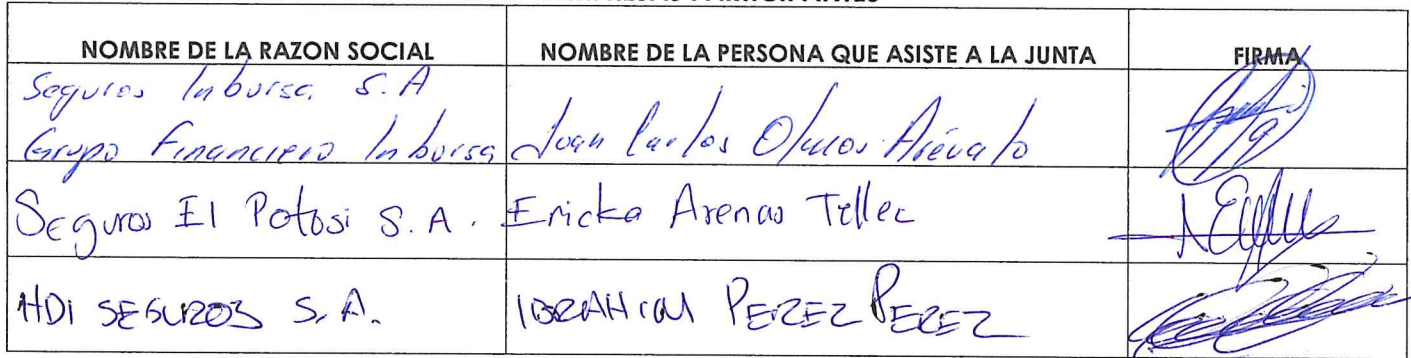 NOMBRE DE LA RAZON SOCIAL NOMBRE DE LA PERSONA QUE ASISTE A LA JUNTA FIRMA
Seguros Inbursa S.A
Grupo Financiero Inbursa Juan Carlos Olmos Arévalo
Seguros El Potosi S.A. Ericka Arenas Tellez
HDI SEGUROS S.A. IBRAHIM PEREZ PEREZ